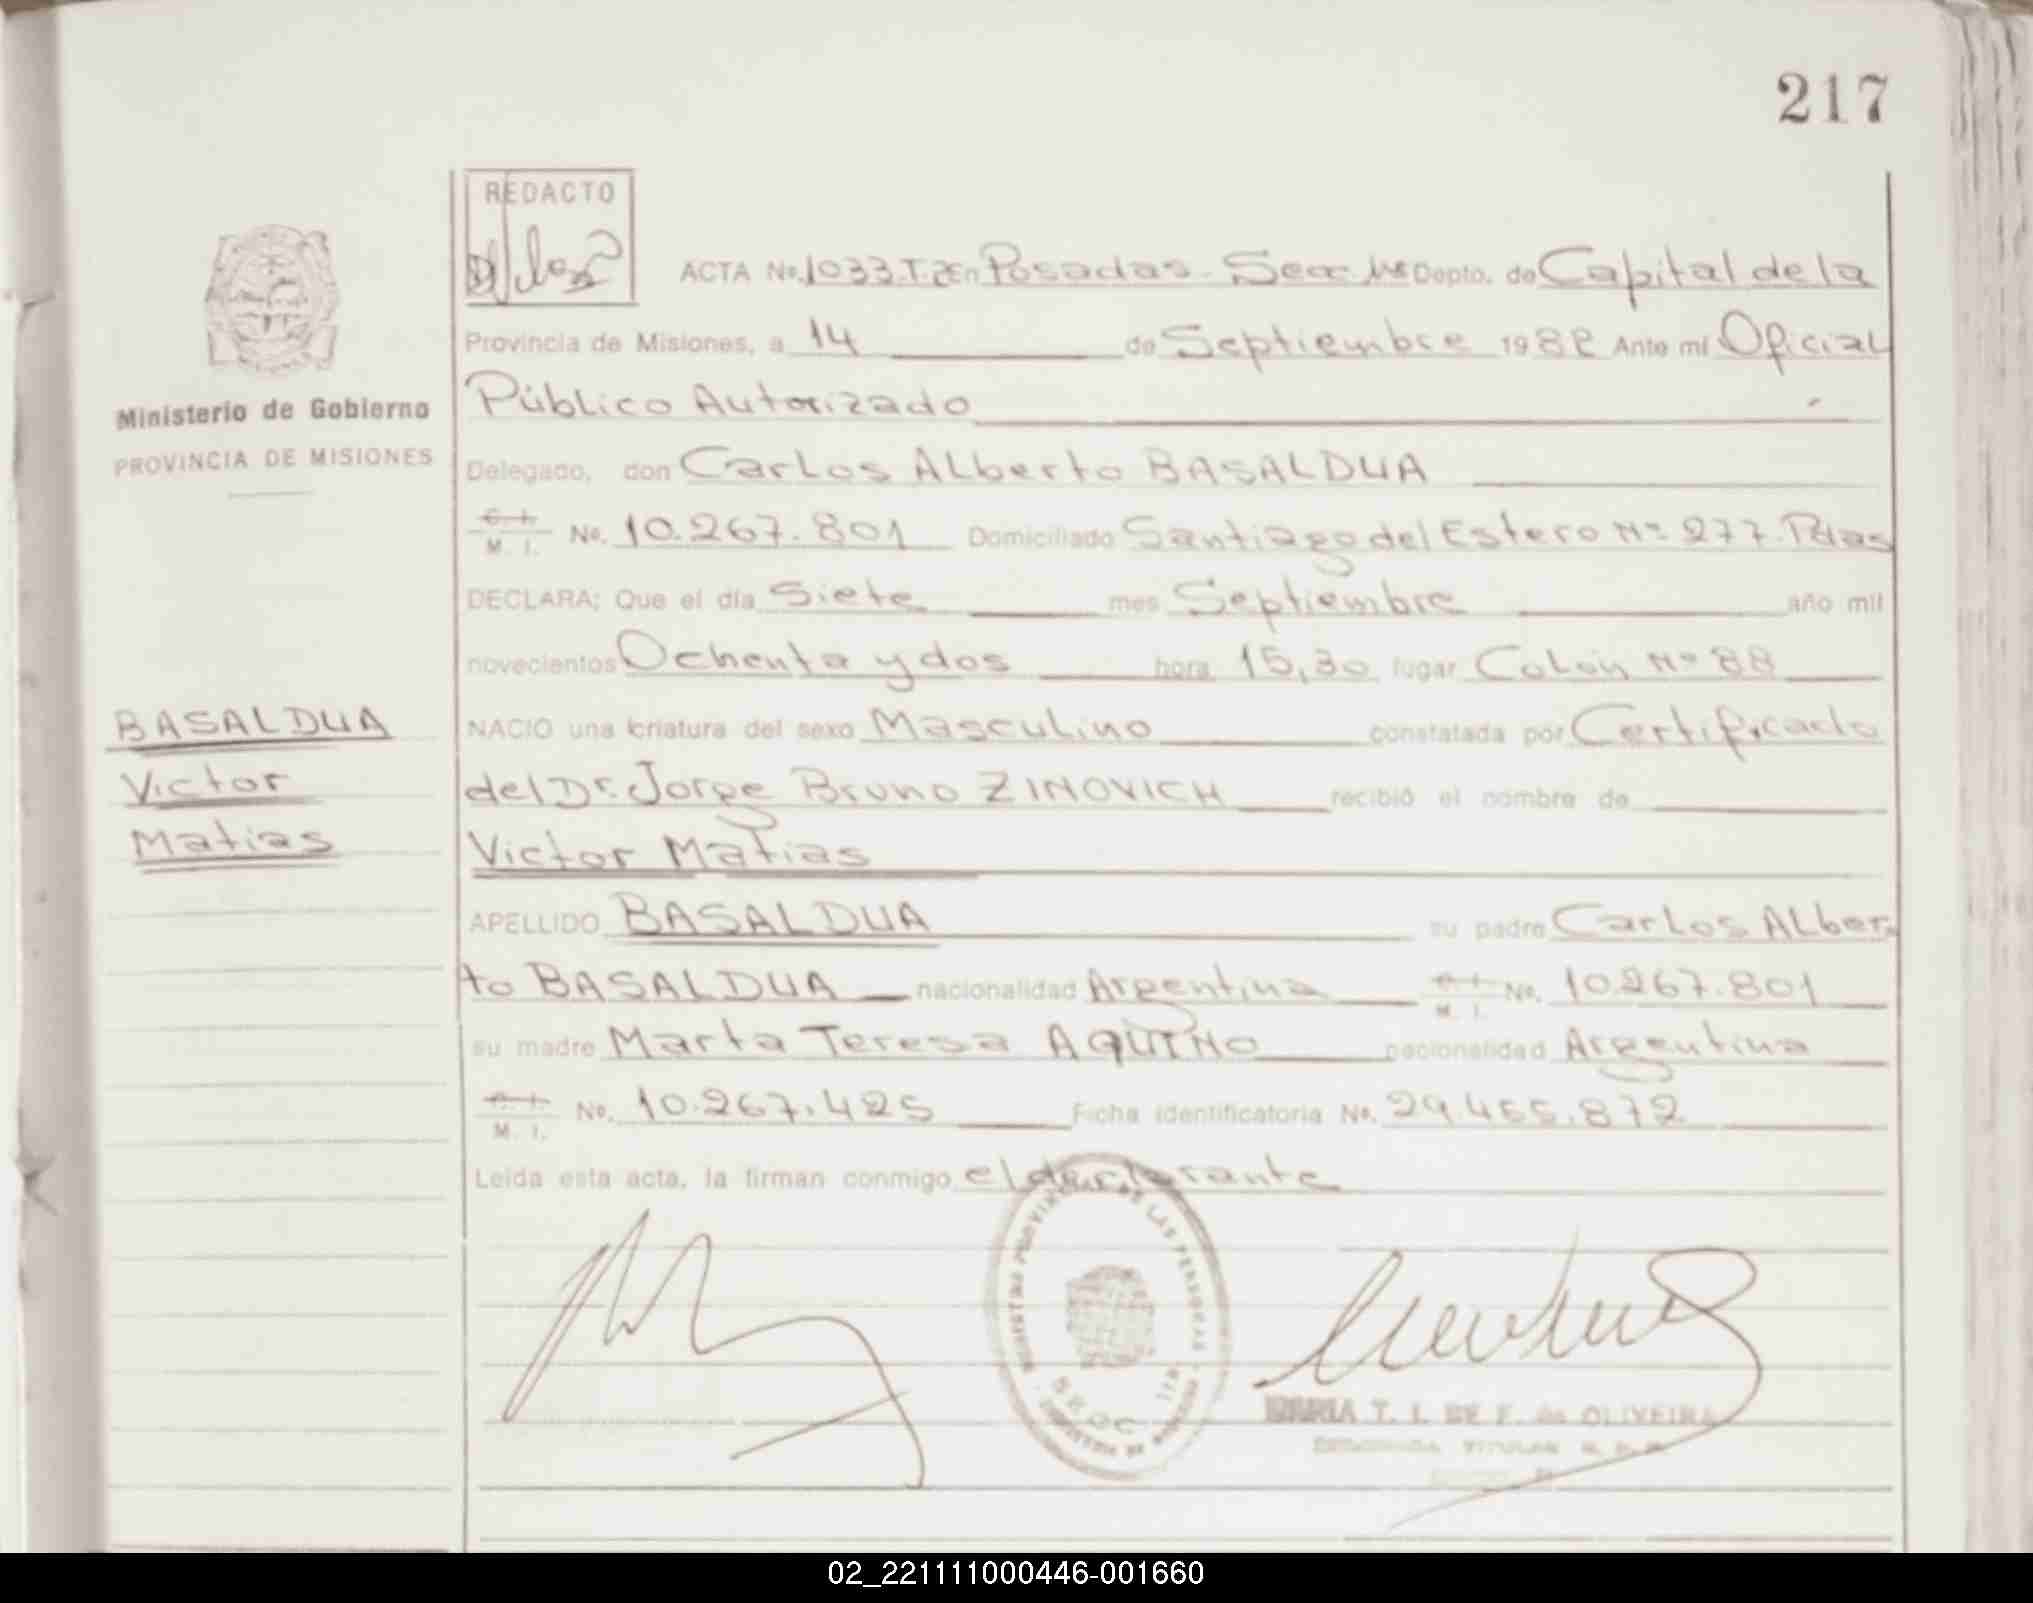 217
REDACTO
ACTA No. 1033.T.2 En Posadas - Secc 1ra Depto. de Capital de la
Provincia de Misiones, a 14 de Septiembre 1982 Ante mí Oficial
Público Autorizado
Ministerio de Gobierno
PROVINCIA DE MISIONES
Delegado, don Carlos Alberto BASALDUA
C. I.
M. I. No. 10.267.801 Domiciliado Santiago del Estero Nº 277. Pdas
DECLARA; Que el día Siete mes Septiembre año mil
novecientos Ochenta y dos hora 15,30 lugar Colón Nº 88
BASALDUA
Victor
Matias
NACIO una criatura del sexo Masculino constatada por Certificado
del Dr. Jorge Bruno ZINOVICH recibió el nombre de
Victor Matias
APELLIDO BASALDUA su padre Carlos Alber-
to BASALDUA nacionalidad Argentina C. I.
M. I. No. 10.267.801
su madre Marta Teresa AQUINO nacionalidad Argentina
C. I.
M. I. No. 10.267.425 Ficha identificatoria No. 29.455.872
Leída esta acta, la firman conmigo el declarante
REGISTRO PROVINCIAL DE LAS PERSONAS
SECC. 1ra
PROVINCIA DE MISIONES
MARIA T. I. DE F. de OLIVEIRA
TITULAR